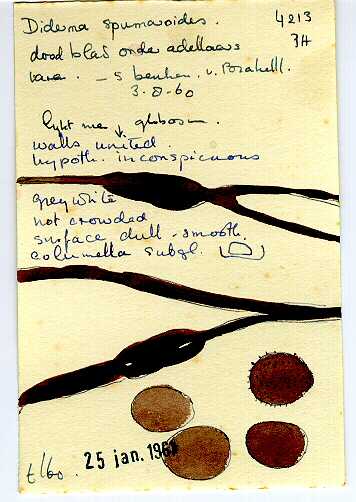 Diderma spumarioides. 4213
dood blad onder adelaars 3H
vara. – 5 beuken. v.
3-8-60
lijkt me globosum.
walls united.
hypoth. inconspicuous
greywhite
not crowded
surface dull - smooth.
columella subgl.
t/60. 25 jan. 196